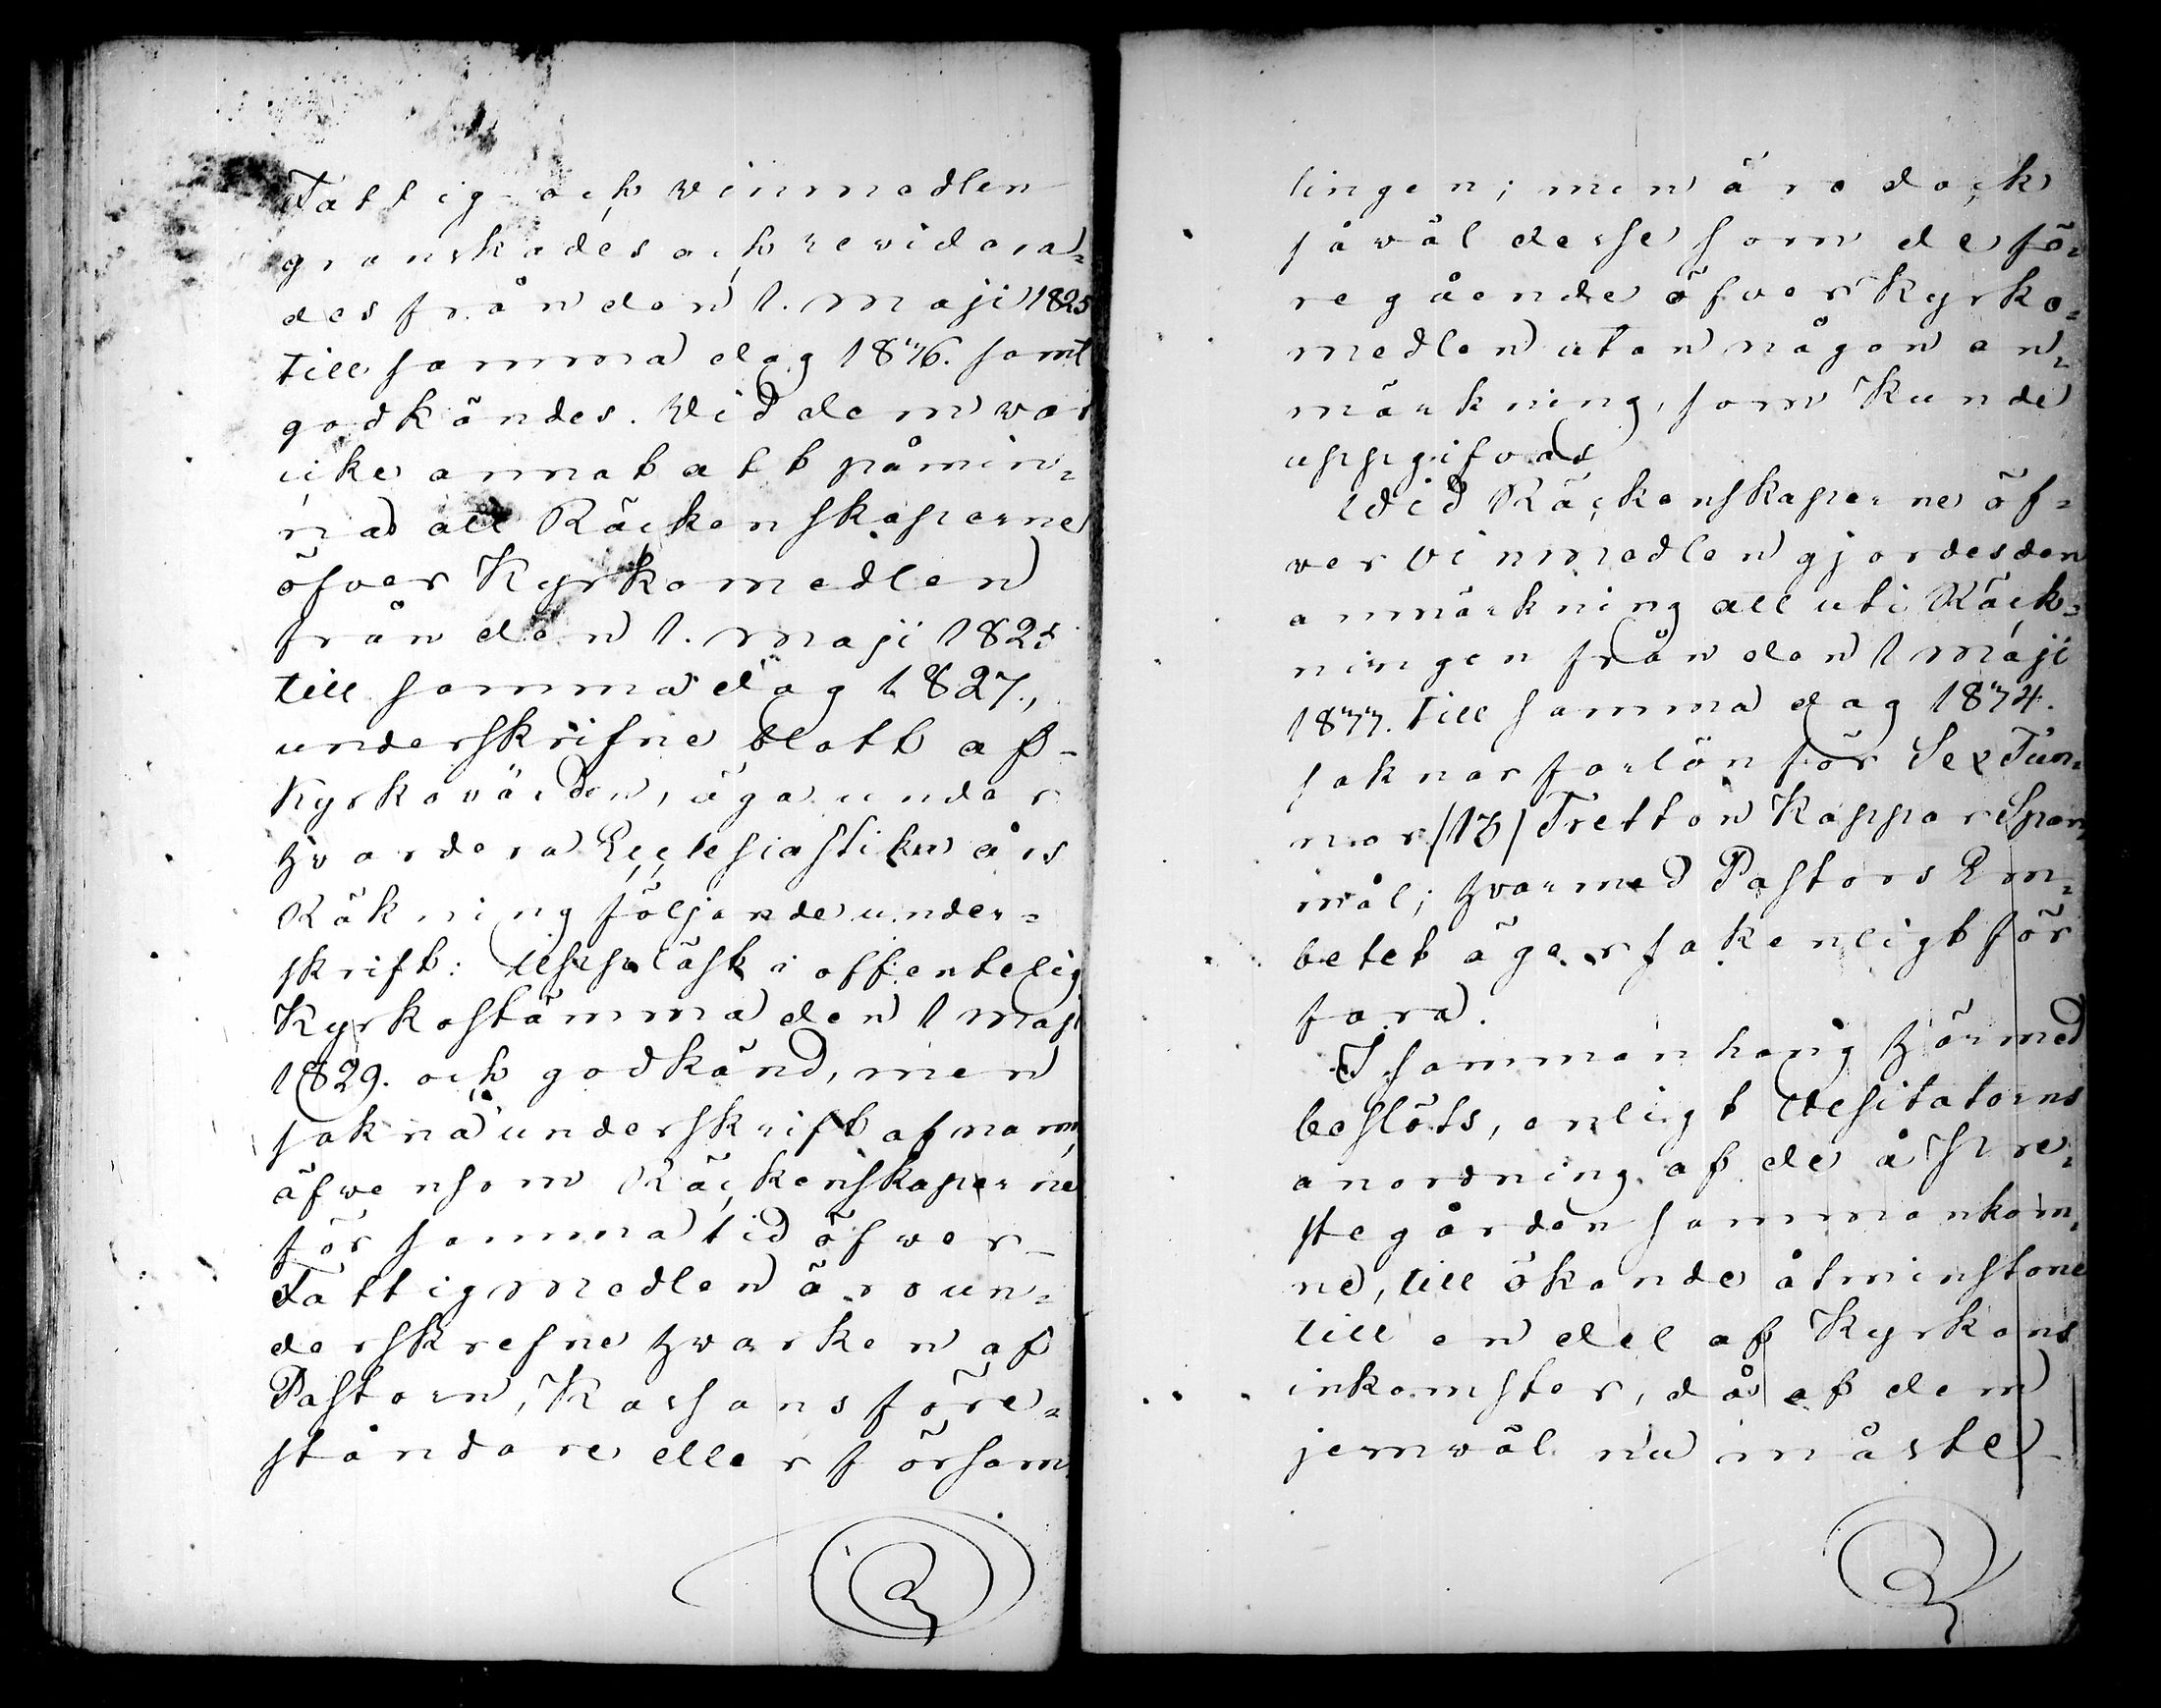 Fattig- och Vinmedlen
granskades och revidera=
des från den 1. Maji 1825
till samma dag 1826. samt
godkändes. Vid dem var
icke annat att påmin=
na än att Räckenskaperne
öfver Kyrkomedlen
från den 1. Maji 1825
till samma dag 1827.,
underskrifne blott af
Kyrkovärden, äga under
hvardera Ecclesiastike års
Räkning följande under=
skrift: Uppläst i offentelig
Kyrkostämma den 1 Maji
1829. och godkänd, men
sakna underskrift af namn,
äfwensom Räckenskaperne
för samma tid öfwer
Fattigmedlen äro un=
derskrefne hvarken af
Pastorn, Kassans före=
ståndare eller försam
lingen; men äro dock
såwäl desse som de fö=
regående öfver Kyrko=
medlen utan någon an=
märkning, som kunde
uppgifvas
Wid Räckenskaperne öf=
wer Vinmedlen gjordes den
anmärkning att uti Räck=
ningen från den 1 Maji
1823. till samma dag 1824.
saknas forlön för Sex Tun=
nor /13/ Tretton Kappar Span=
mål; hvarmed Pastors Em=
betet äger sakenligt för
fara.
I sammanhang härmed
beslöts, enligt Visitatorns
anordning af de å Pre=
stegården sammankom=
ne, till ökande åtminstone
till en del af Kyrkans
inkomster, då af dem
jemwäl nu måste